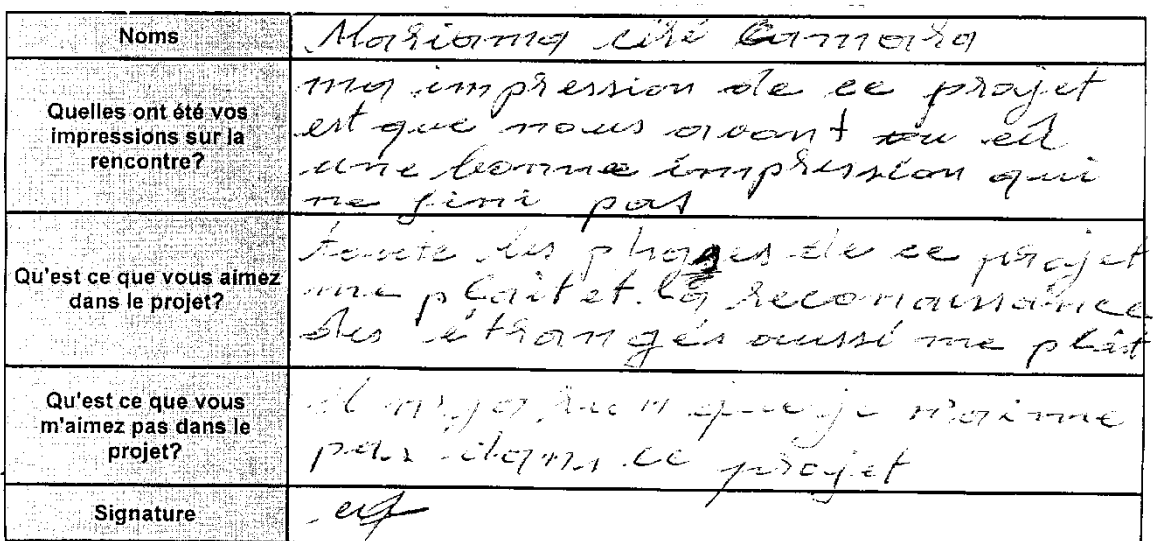 Noms
Mariama ciré Camara
Quelles ont été vos
impressions sur la
rencontre?
ma impression de ce projet
est que nous avont eu
une bonne impression qui
ne fini pas
Qu'est ce que vous aimez
dans le projet?
toute les phases de ce projet
me plait et la reconaissance
des étrangés aussi me plait
Qu'est ce que vous
m'aimez pas dans le
projet?
il n'y a rien que je n'aime
pas dans ce projet
Signature